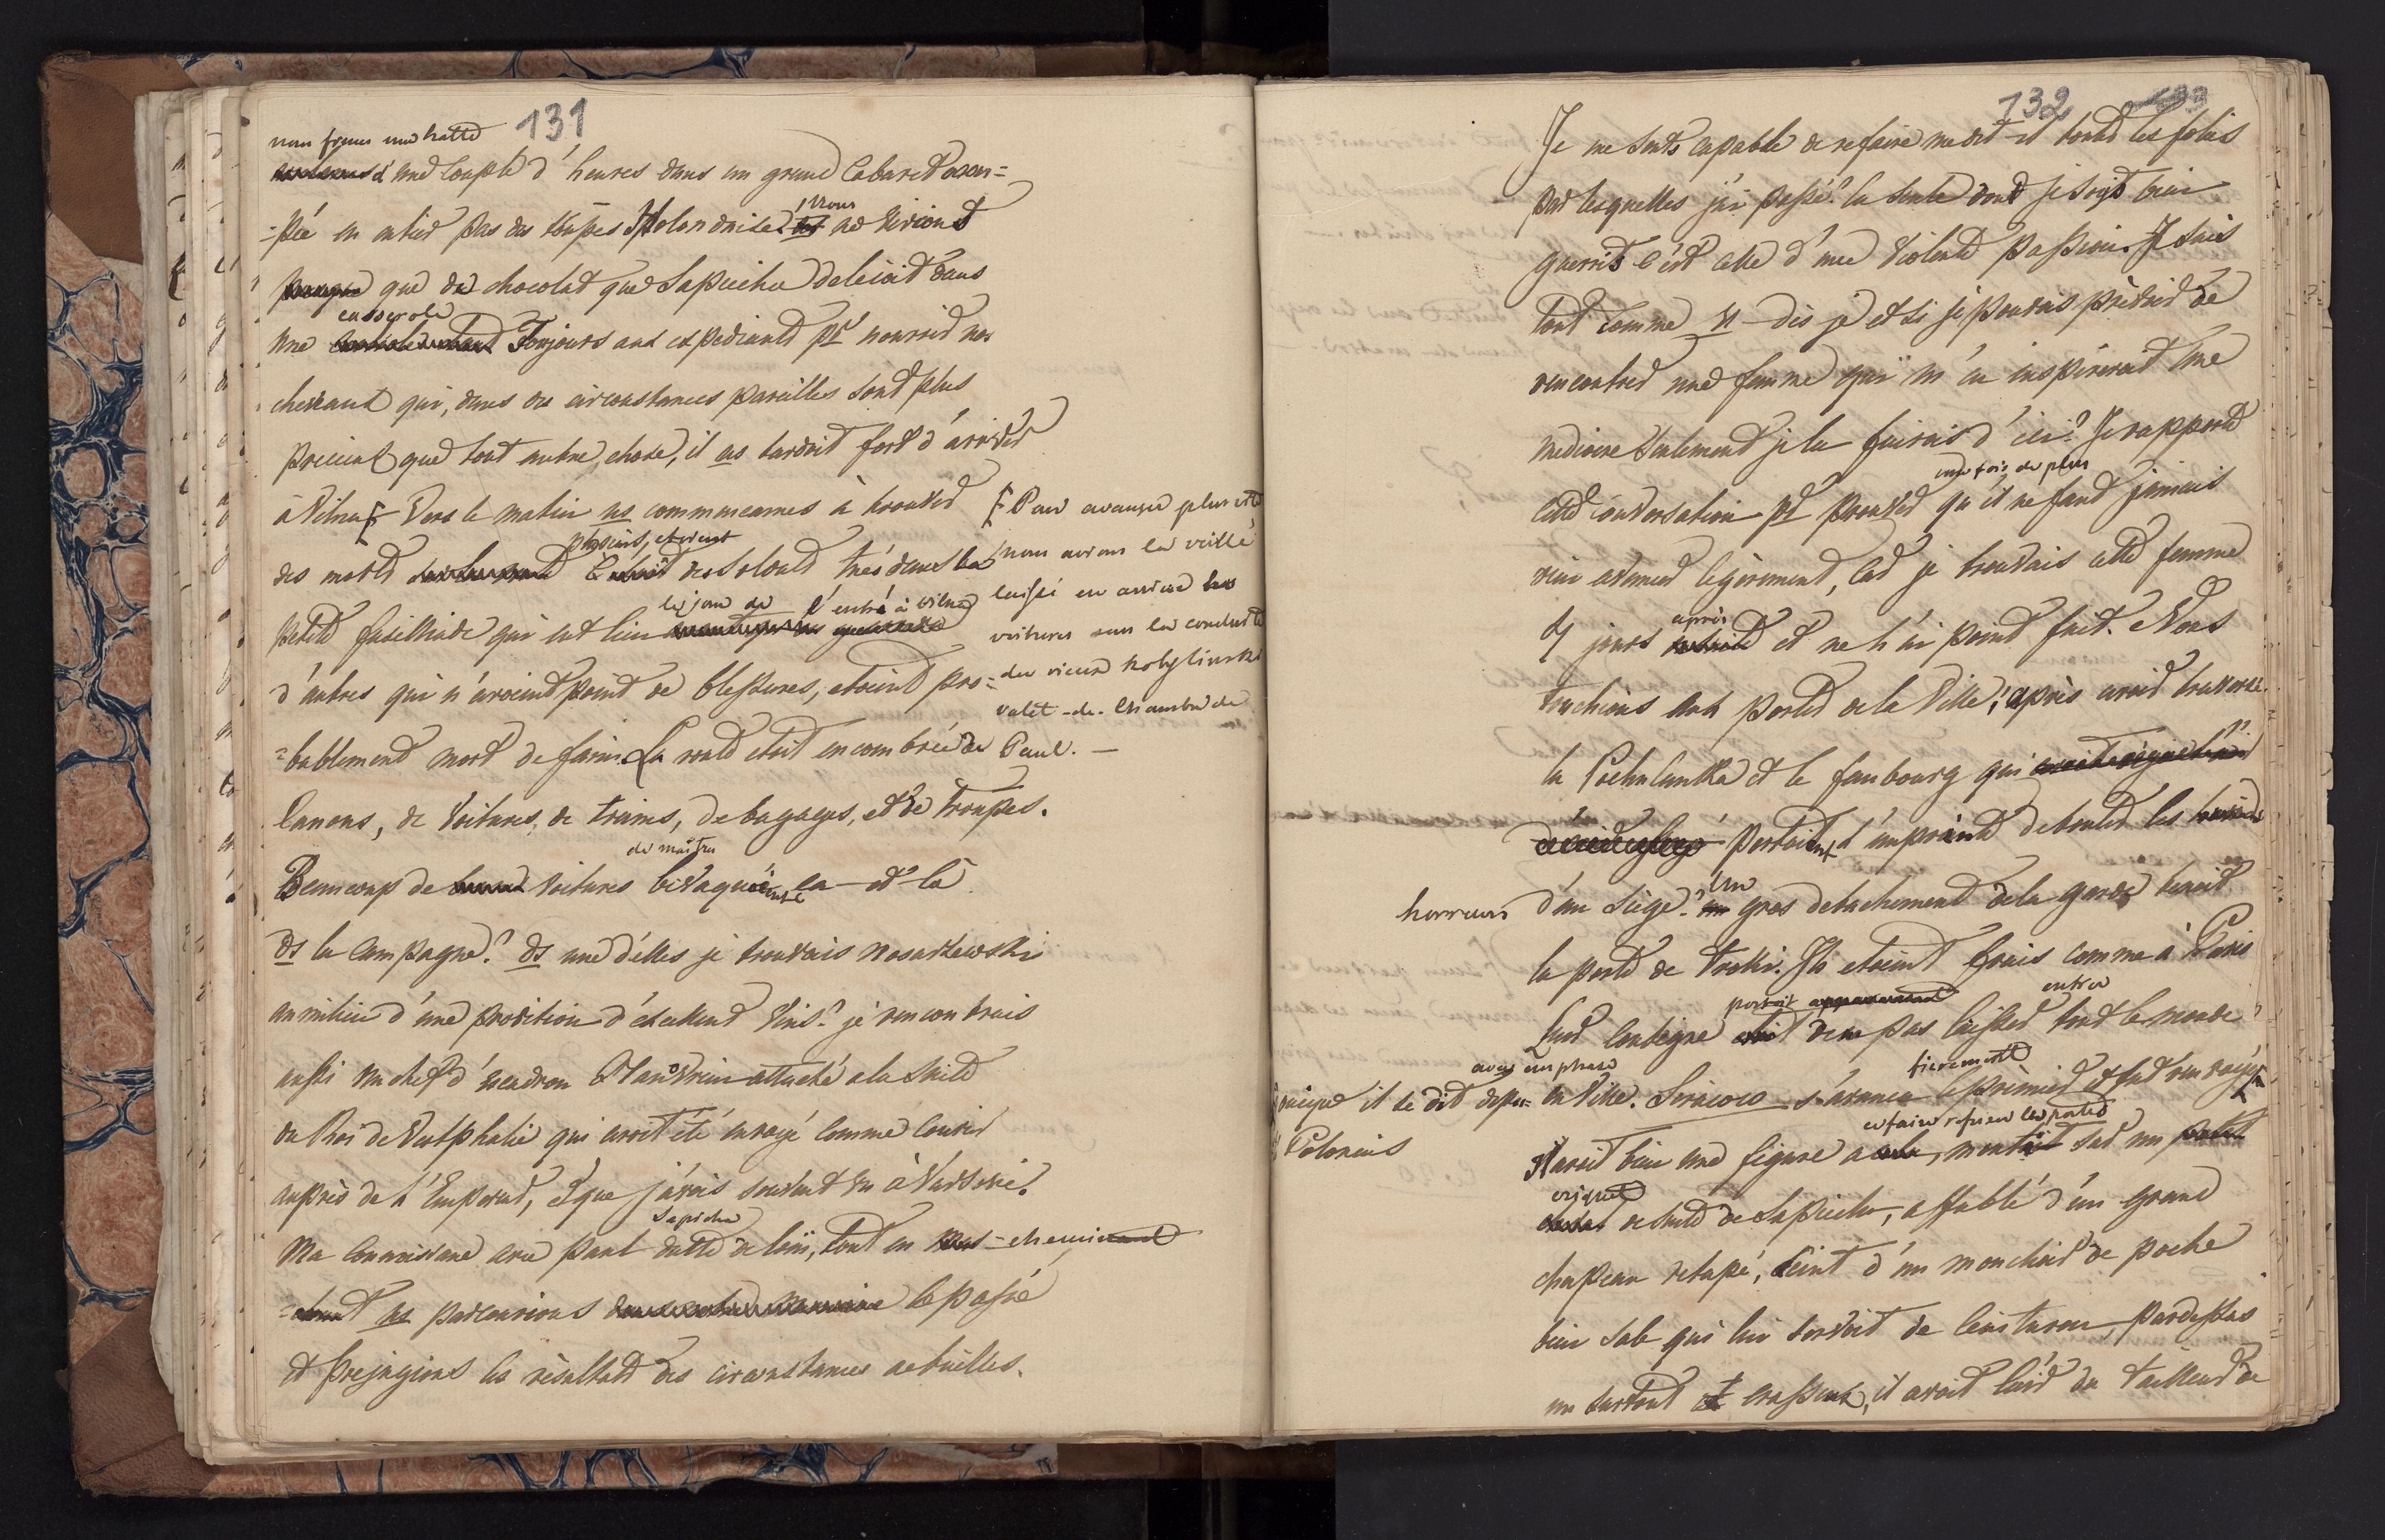 131
nous fimes une halte
d'une couple d'heures dans un grand Cabaret occu=
=pée en entier par des troupes Polonaises Nous ne vivions
que du chocolat que Sapieha delaiait dans
casserole
une Toujours aux expediants pr nourrir nos
chevaux qui, dans des circonstances pareilles sont plus
precieux que tout autre chose, il ns tardoit fort d'arriver
à Vilna Vers le matin ns commencames à trouver
plusieurs, etoient
des morts des soldats tués dans la
le jour de l'entré à Vilna
petite fusilliade qui eut lieu
d'autres qui n'avoient point de blessures, etoient pro=
=bablement mort de faim. La route etoit encombrée de
Canons, de voitures, de trains, de bagages, et de troupes.
de maitres
Beaucoup de voitures bivaquoient ça-et-là
ds la Campagne. ds une d'elles je trouvais
au milieu d'une provition d'excellent vins. je rencontrais
aussi un chef d'escadron attaché a la suite
du Roi de Vestphalie qui avoit été envoyé comme Courier
auprès de l'Empereur, et que j'avois souvent vu à Varsovie.
Sapieha
Ma connoissance avec Paul datte de loin, tout en chemi
ns parcourions le passé
et prejugions les résultats des circonstances actuelles.
Pour avancer plus vite
nous avions la veille
laissé en arriere les
voitures sous la conduite
du vieux Kobylinski
valet-de-chambre de
Paul. —
132 133
Je me sents capable de refaire me dit-il toutes les folies
par lesquelles j'ai passé. la seule dont je sois bien
guerris c'est celle d'une violente passion. Je suis
tout comme vs - dis je et si je pouvais prevoir de
rencontrer une femme qui m'en inspireroit une
mediocre seulement je la fuirais d'ici. Je rapporte
une fois de plus
cette conversation pr prouver qu'il ne faut jamais
rien avancer legèrement, car je trouvais cette femme
après
jours et ne l'ai point fuit. Nous
touchions aux portes de la Ville, après avoir traversé
la Pohulanka et le faubourg qui
portoient l'emprinte de toutes les
horreurs d'un siège. Un gros detachement de la garde tenoit
la porte de Troki. Ils etoient frais comme à Paris
portoit entrer
Leur Consigne de ne pas laisser tout le monde
avec emphase fierement
en Ville. s'avance le premier et fut renvoyé
il se dit
Polonais
a faire refuser les portes
Il avoit bien une figure a monté sur un
de suite de Sapieha, affublé d'un grand
chapeau retapé, ceint d'un mouchoir de poche
bien sale qui lui servoit de ceinturon, pardessus
un surtout crasseux, il avoit l'air du tailleur de